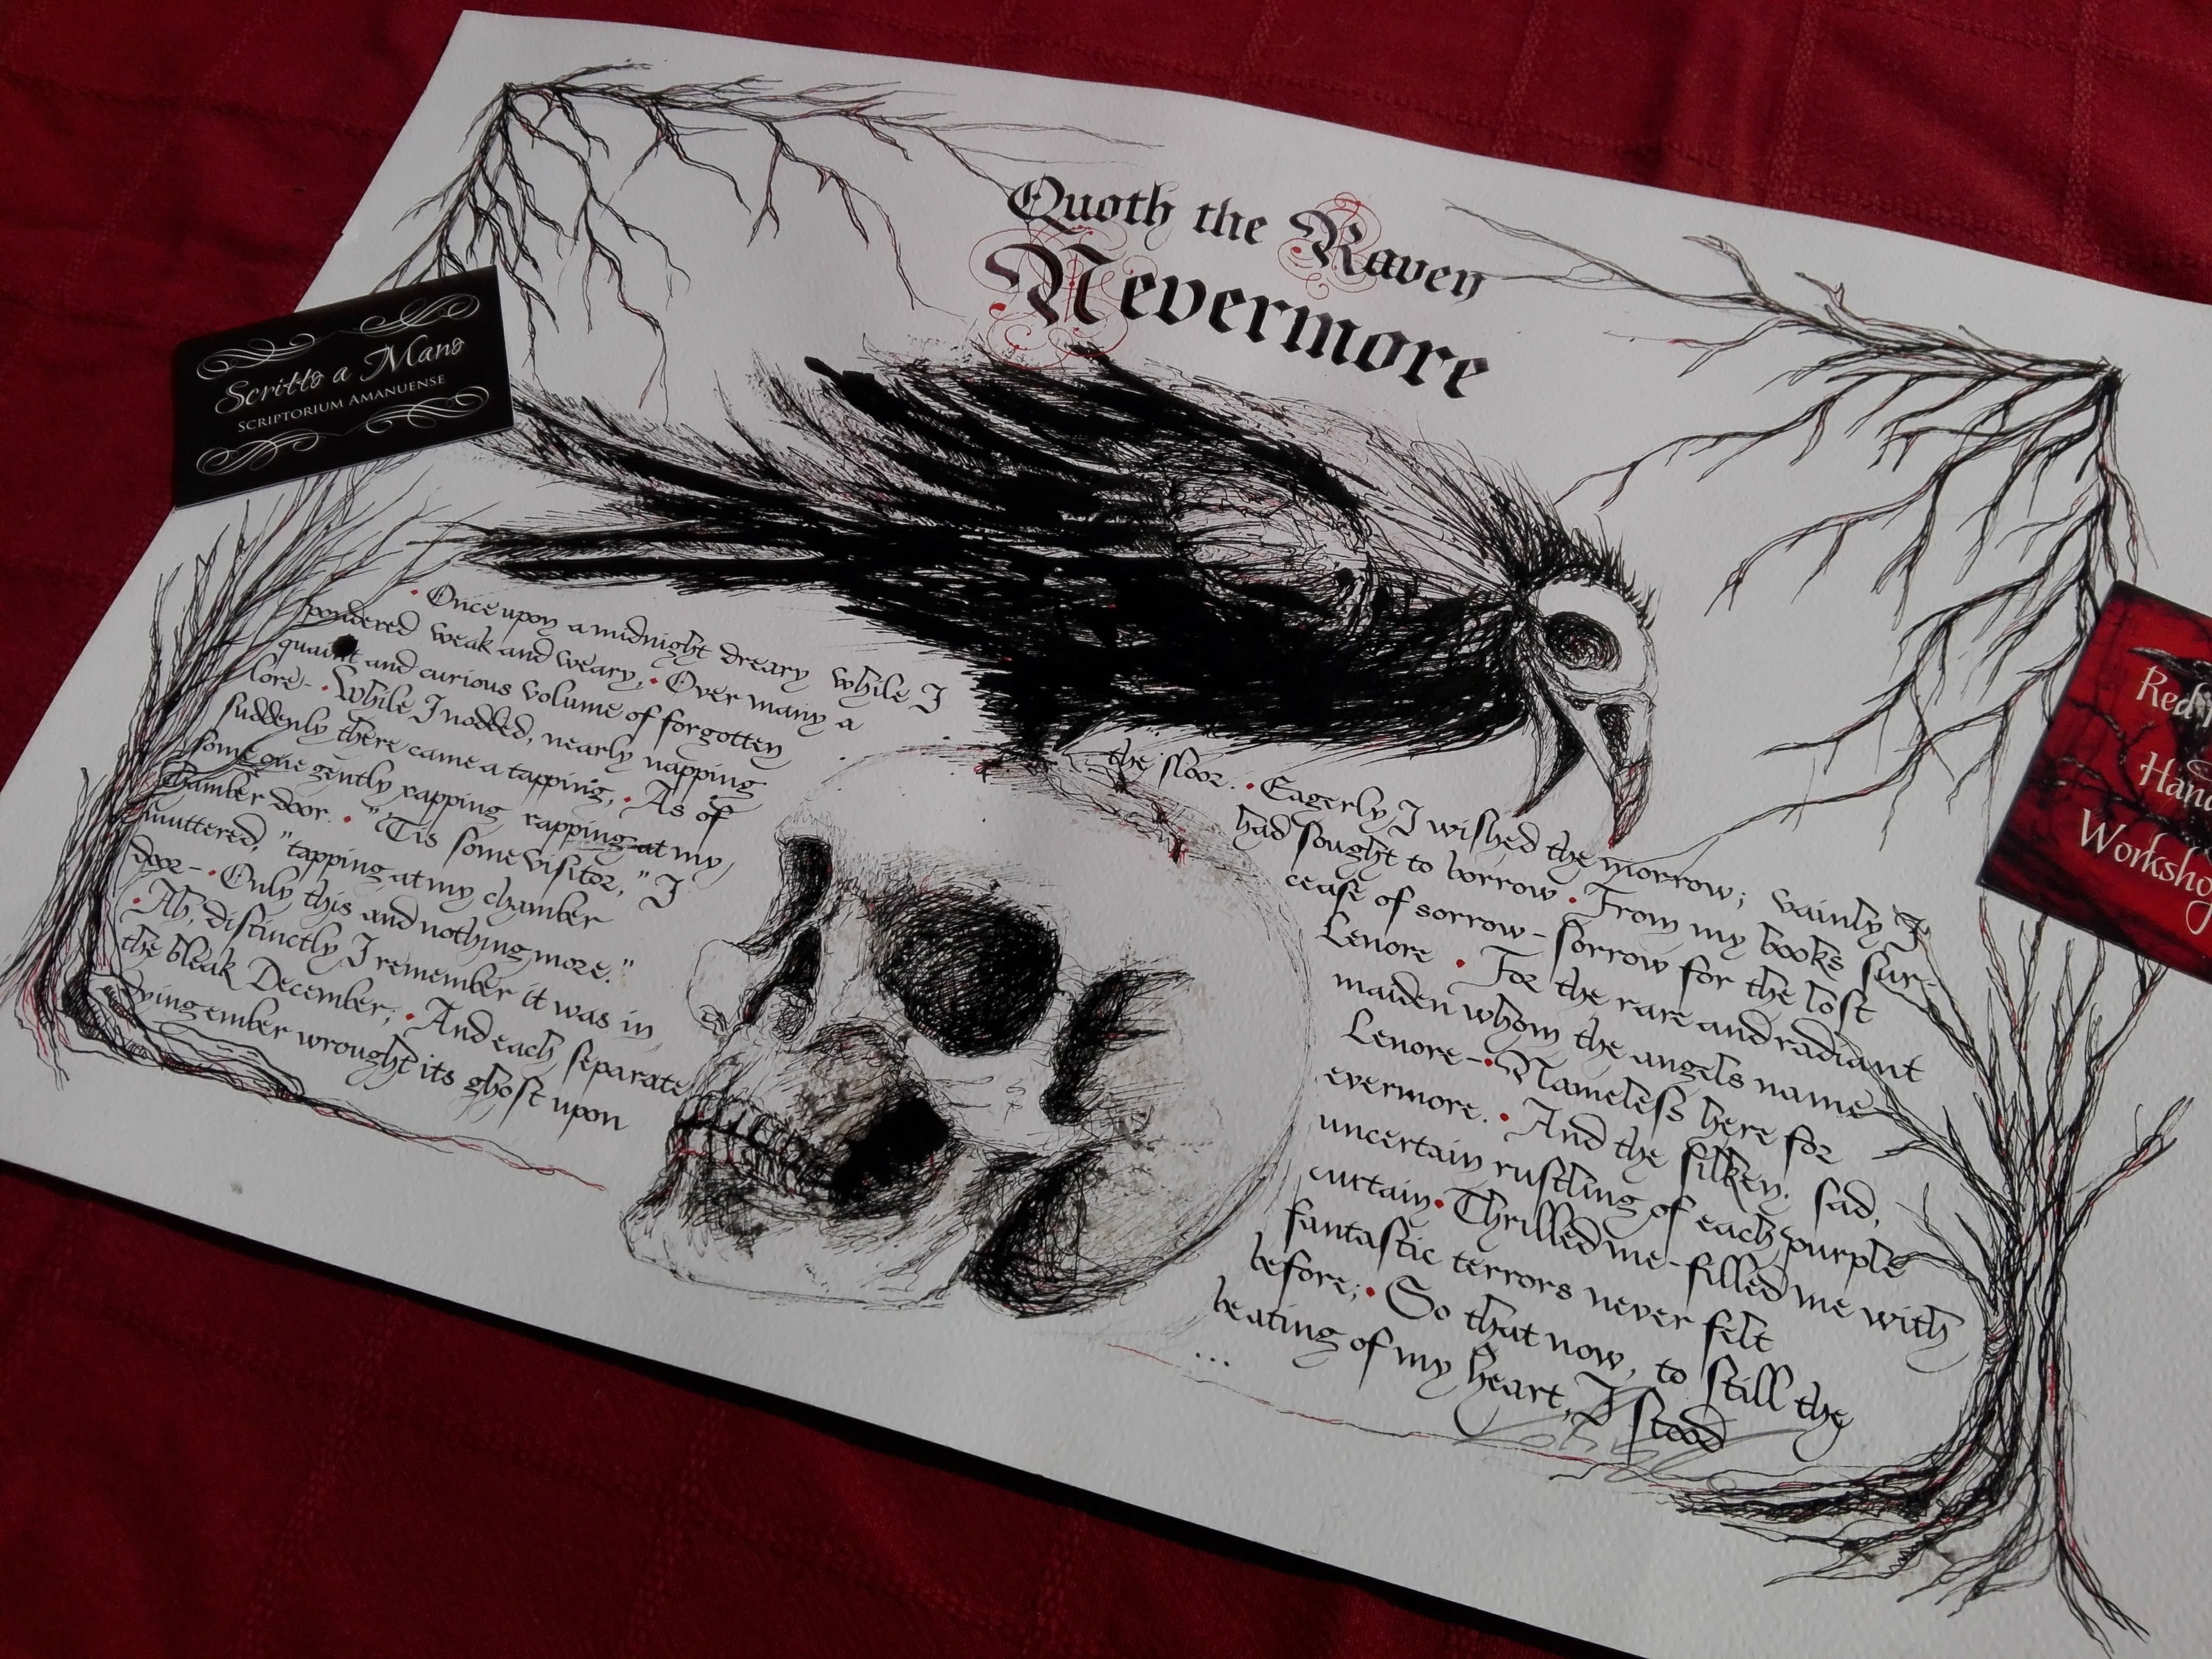 Quoth the Raven
Nevermore
Scritto a Mano
SCRIPTORIUM AMANUENSE
· Once upon a midnight dreary while I
pondered weak and weary, · Over many a
quaint and curious volume of forgotten
lore- · While I nodded, nearly napping
suddenly there came a tapping, · As of
some one gently rapping rapping at my
chamber door. · "'Tis some visitor," I
muttered, "tapping at my chamber
door- · Only this and nothing more."
· Ah, distinctly I remember it was in
the bleak December; · And each separate
dying ember wrought its ghost upon
the floor. · Eagerly I wished the morrow; vainly I
had sought to borrow · From my books sur-
cease of sorrow - sorrow for the lost
Lenore · For the rare and radiant
maiden whom the angels name
Lenore - · Nameless here for
evermore. · And the silken, sad,
uncertain rustling of each purple
curtain · Thrilled me - filled me with
fantastic terrors never felt
before; · So that now, to still the
beating of my heart, I stood
...
Red
Hand
Workshop